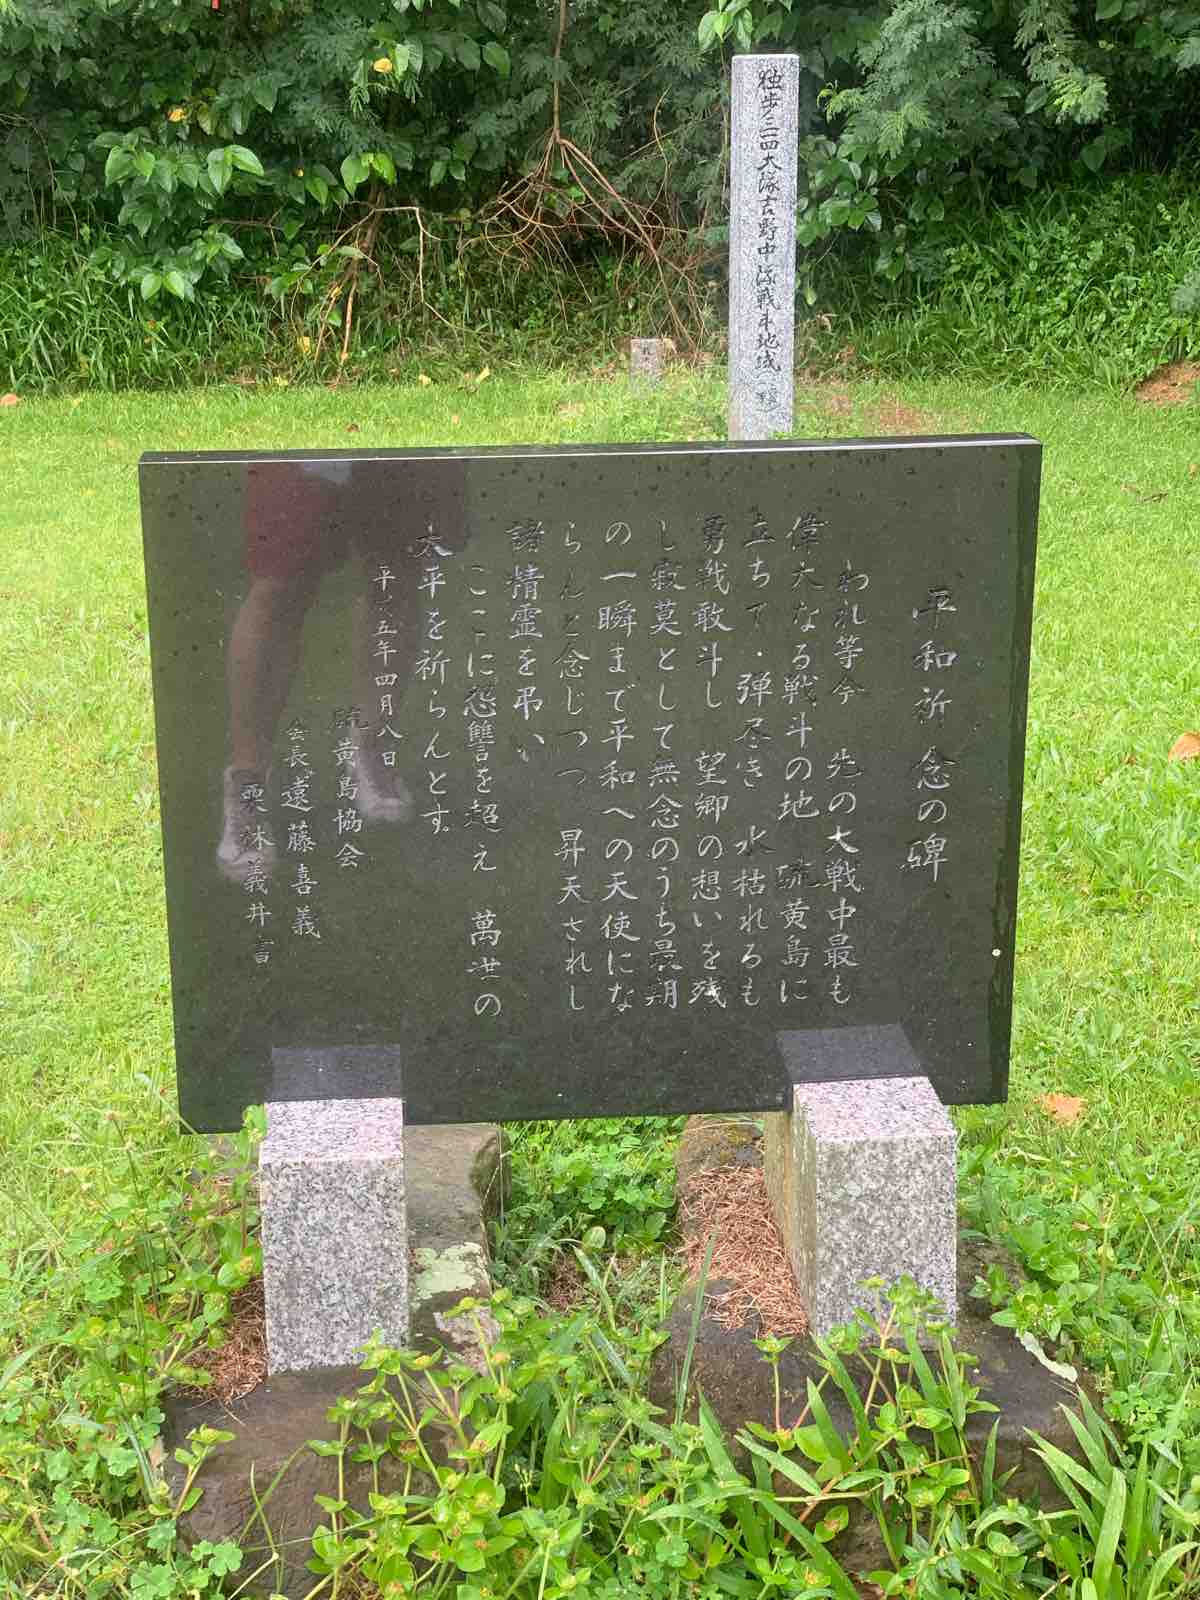 独歩三一四大隊吉野中隊戦斗地域
平和祈念の碑
われ等今 先の大戦中最も
偉大なる戦斗の地 硫黄島に
立ちて・弾尽き 水枯れるも
勇戦敢斗し 望郷の想いを残
し寂莫として無念のうち最期
の一瞬まで平和への天使にな
らんと念じつつ 昇天されし
諸精霊を弔い
ここに怨讐を超え 萬世の
太平を祈らんとす。
平成五年四月八日
硫黄島協会
会長 遠藤喜義
栗林義井書